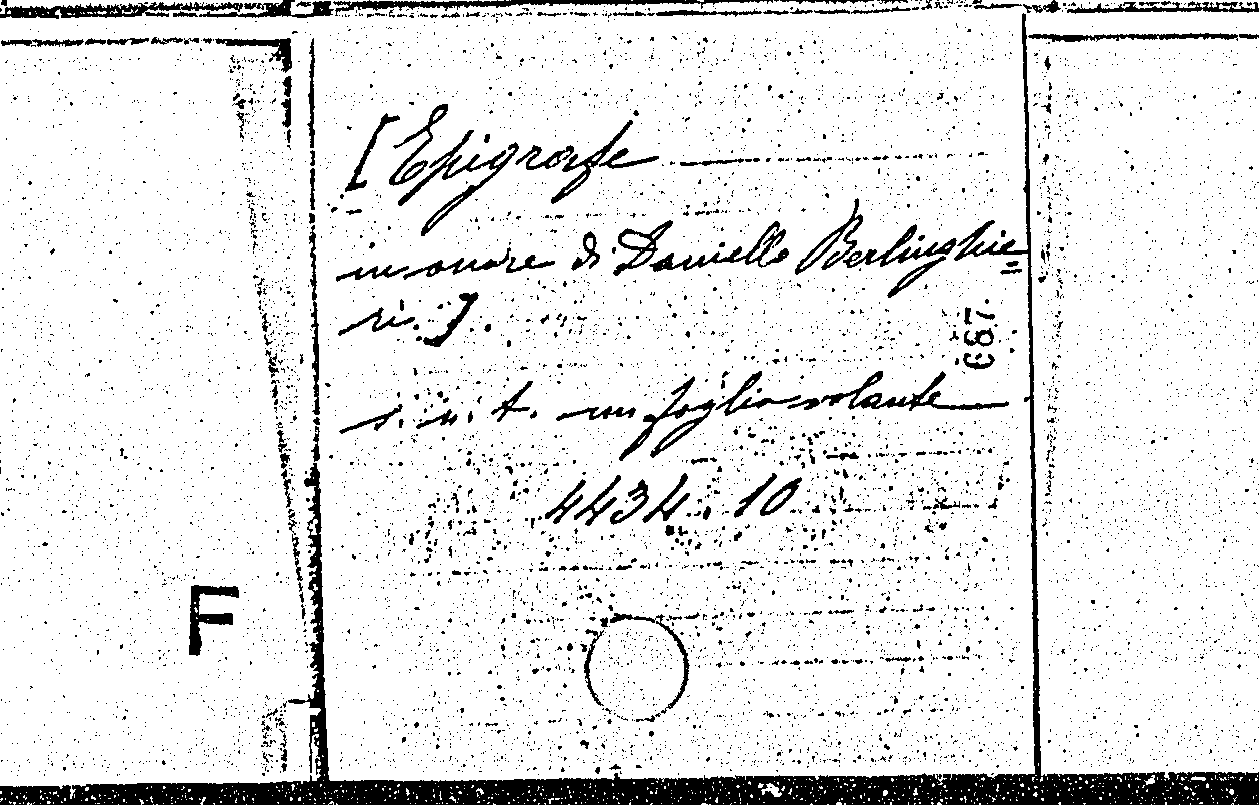 [Epigrafe
in onore di Daniello Berlinghie=
ri.].
s. n. t. un foglio volante
4434.10
687.
F